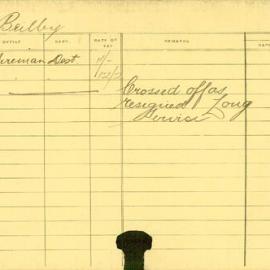 Bailby
OFFICE DEPT. RATE OF PAY REMARKS
Fireman Dest. 11/-
Crossed off as
resigned Long
Service